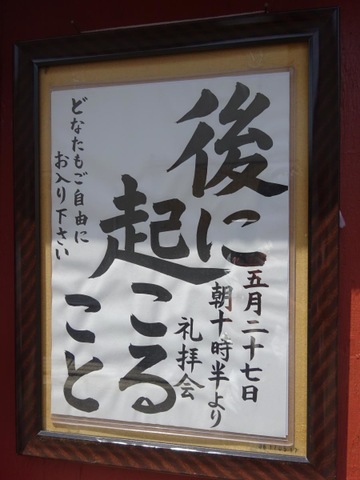 後に
起こる
こと
五月二十七日
朝十時半より
礼拝会
どなたもご自由に
お入り下さい